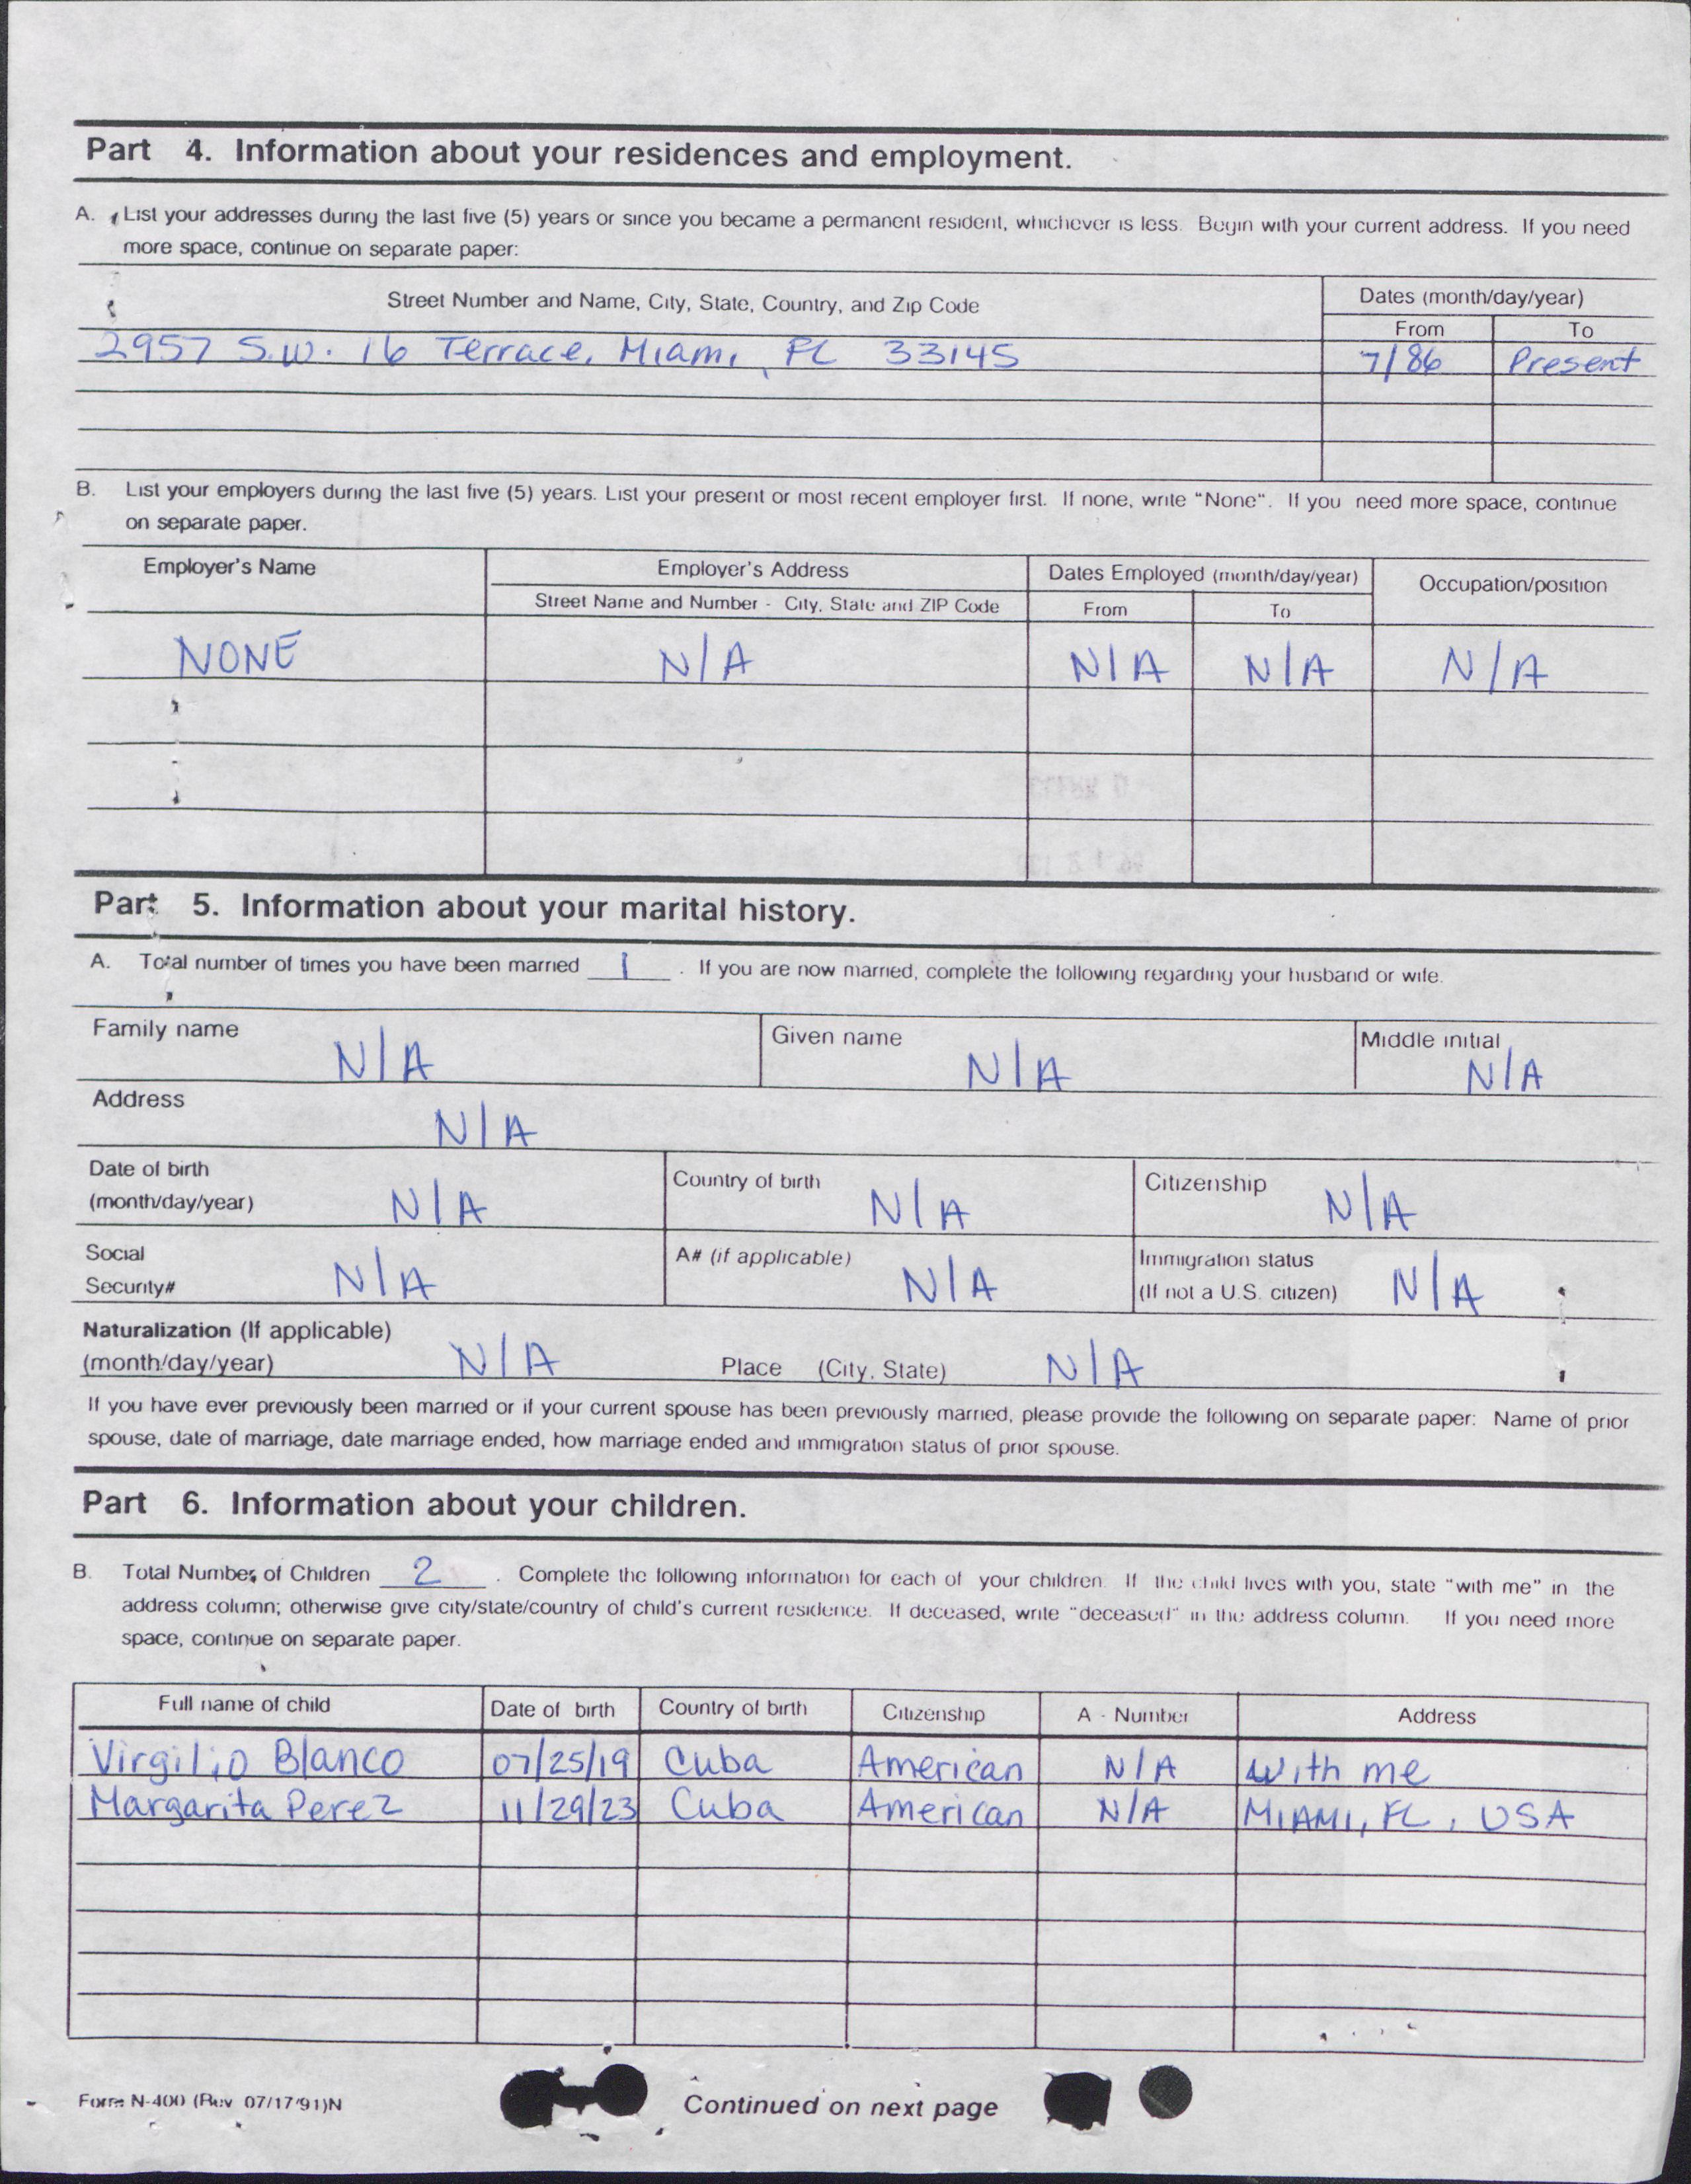 Part 4. Information about your residences and employment.
A. List your addresses during the last five (5) years or since you became a permanent resident, whichever is less. Begin with your current address. If you need
more space, continue on separate paper:
Street Number and Name, City, State, Country, and Zip Code
Dates (month/day/year)
From To
2957 S.W. 16 Terrace, Miami, FL 33145 7/86 Present
B. List your employers during the last five (5) years. List your present or most recent employer first. If none, write "None". If you need more space, continue
on separate paper.
Employer's Name Employer's Address Dates Employed (month/day/year) Occupation/position
Street Name and Number - City, State and ZIP Code From To
NONE N/A N/A N/A N/A
Part 5. Information about your marital history.
A. Total number of times you have been married 1 . If you are now married, complete the following regarding your husband or wife.
Family name N/A Given name N/A Middle initial N/A
Address N/A
Date of birth
(month/day/year) N/A Country of birth N/A Citizenship N/A
Social
Security# N/A A# (if applicable) N/A Immigration status
(If not a U.S. citizen) N/A
Naturalization (If applicable)
(month/day/year) N/A Place (City, State) N/A
If you have ever previously been married or if your current spouse has been previously married, please provide the following on separate paper: Name of prior
spouse, date of marriage, date marriage ended, how marriage ended and immigration status of prior spouse.
Part 6. Information about your children.
B. Total Number of Children 2 . Complete the following information for each of your children. If the child lives with you, state "with me" in the
address column; otherwise give city/state/country of child's current residence. If deceased, write "deceased" in the address column. If you need more
space, continue on separate paper.
Full name of child Date of birth Country of birth Citizenship A - Number Address
Virgilio Blanco 07/25/19 Cuba American N/A With me
Margarita Perez 11/29/23 Cuba American N/A MIAMI, FL, USA
Form N-400 (Rev 07/17/91)N Continued on next page